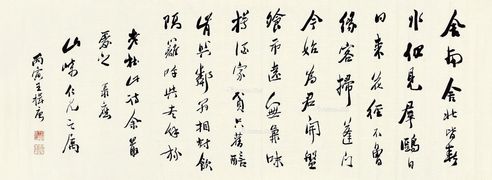 舍南舍北皆春
水但見羣鷗日
日來花徑不曾
緣客掃蓬門
今始為君開盤
飧市遠無兼味
樽酒家貧只舊醅
肯與鄰翁相對飲
隔籬呼取盡餘杯
老杜此詩余最
愛之 錄應
山 仁兄之屬
丙寅王